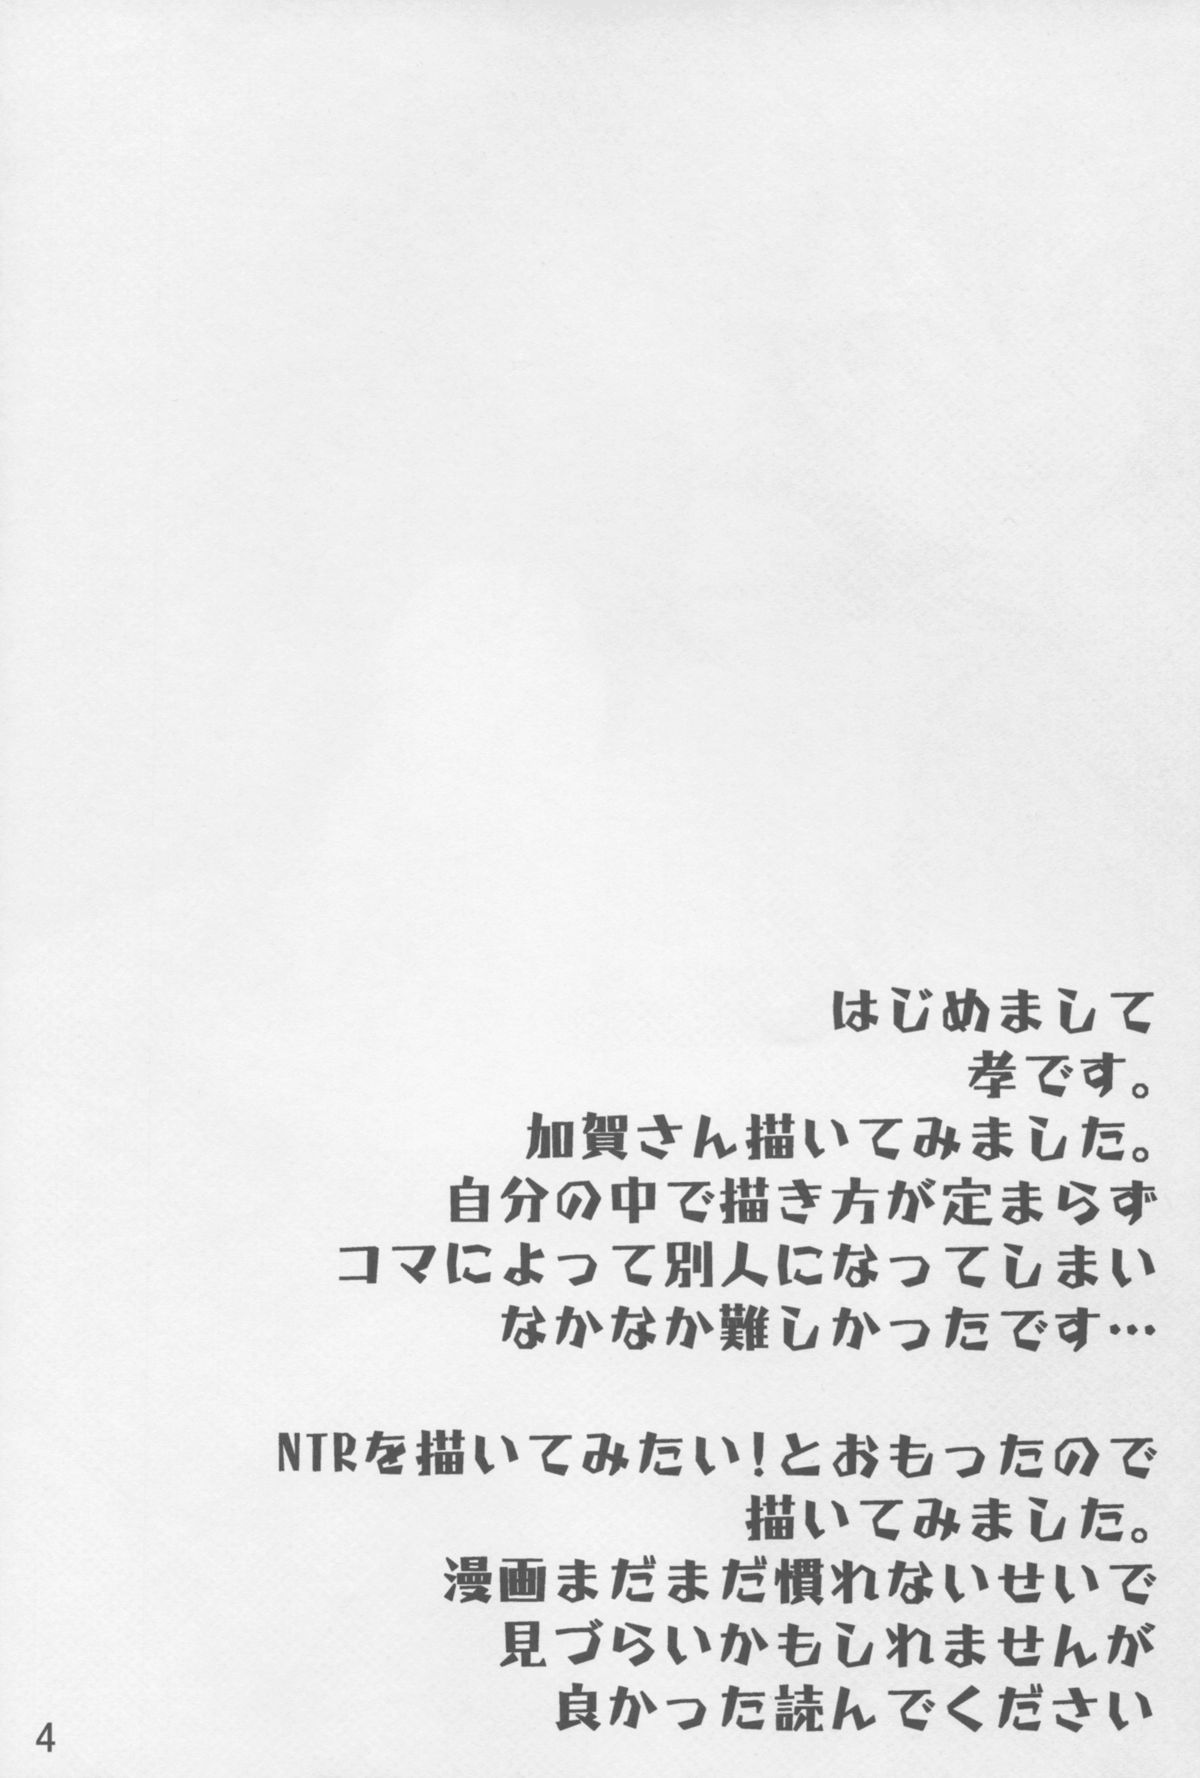 はじめまして
孝です。
加賀さん描いてみました。
自分の中で描き方が定まらず
コマによって別人になってしまい
なかなか難しかったです…
NTRを描いてみたい！とおもったので
描いてみました。
漫画まだまだ慣れないせいで
見づらいかもしれませんが
良かった読んでください
4